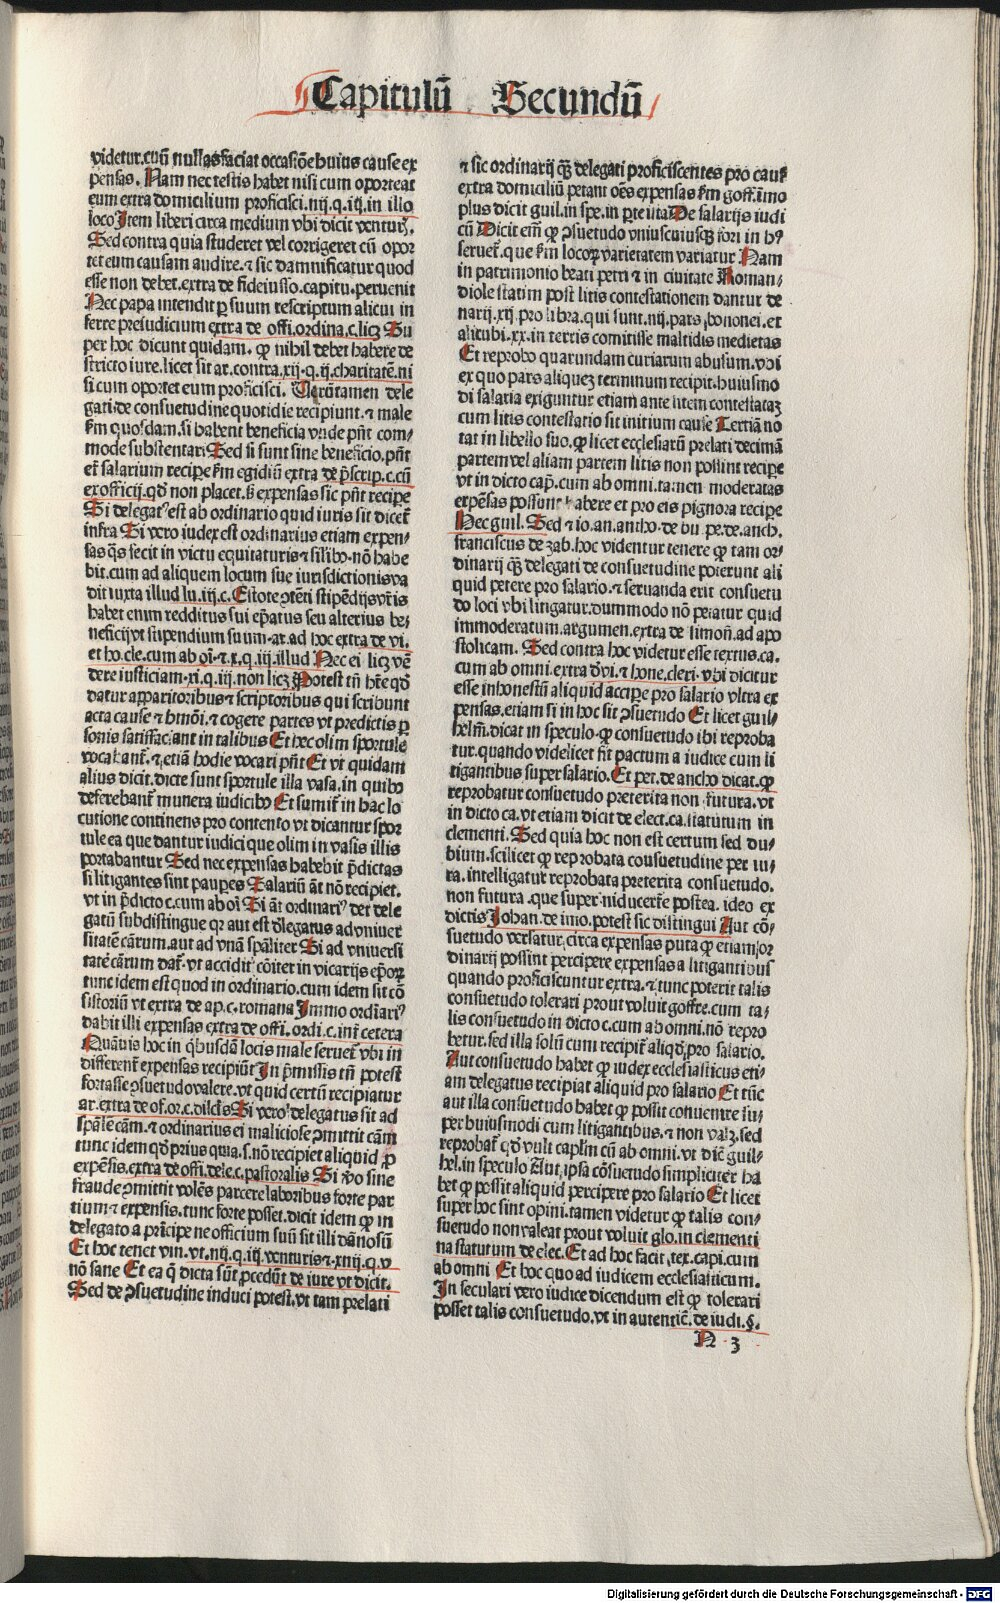 Capitulū Secundū
videtur.cuū nullas faciat occasiōe huius cause ex
pensas. Nam nec testis habet nisi cum oporteat
eum extra domicilium proficisci.iiij.q.iij.in illo
loco Item liberi circa medium vbi dicit venturꝭ.
Sed contra quia studeret vel corrigeret cū opor
tet eum causam audire.⁊ sic damnificatur quod
esse non debet.extra de fideiussio.capitu.peruenit
Nec papa intendit ꝑ suum rescriptum alicui in
ferre preiudicium extra de offi.ordina.c.licꝫ Su
per hoc dicunt quidam. ꝙ nihil debet habere de
stricto iure.licet sit ar.contra.xij.q.ij.charitatē.ni
si cum oportet eum proficisci. Uerūtamen dele
gati.de consuetudine quotidie recipiunt.⁊ male
ẜm quosdam.si habent beneficia vnde pn̄t com⸗
mode substentari Sed si sunt sine beneficio.pn̄t
et̄ salarium recipe ẜm egidiū extra de p̄scrip.c.cū
ex officij.qd̄ non placet.ẜ expensas sic pn̄t recipe
Si delegatꝰ est ab ordinario quid iuris sit dicet̄
infra Si vero iudex est ordinarius etiam expen⸗
sas q̄s fecit in victu equitaturis ⁊ silibꝫ.nō habe
bit.cum ad aliquem locum sue iurisdictionis va
dit iuxta illud lu.iij.c. Estote ꝯtēti stipēdijs vr̄is
habet enim redditus sui ep̄atus seu alterius be⸗
neficij vt stipendium suum.ar.ad hoc extra de vi.
et ho.cle.cum ab oī.⁊.x.q.iij.illud Nec ei licꝫ vē
dere iusticiam.xi.q.iij.non licꝫ Potest tn̄ hr̄e qd̄
datur apparitoribus ⁊ scriptoribus qui scribunt
acta cause ⁊ hmōi.⁊ cogere partes vt predictis ꝑ
sonis satisfaciant in talibus Et hec olim sportule
vocabant̄.⁊ etiā hodie vocari pn̄t Et vt quidam
alius dicit.dicte sunt sportule illa vasa.in quibꝫ
deferebant̄ munera iudicibꝫ Et sumit̄ in hac lo
cutione continens pro contento vt dicantur spor
tule ea que dantur iudici que olim in vasis illis
portabantur Sed nec expensas habebit p̄dictas
si litigantes sint paupes Salariū āt nō recipiet.
vt in p̄dicto c.cum ab oī Si āt ordinariꝰ det dele
gatū subdistingue qꝛ aut est d̄legatus ad vniuer
sitatē cārum.aut ad vnā spāliter Si ad vniuersi
tatē cārum dat̄.vt accidit cōiter in vicarijs ep̄oꝝ
tunc idem est quod in ordinario.cum idem sit cō
sistoriū vt extra de ap.c.romana Immo ordīariꝰ
dabit illi expensas extra de offi.ordi.c.int̄ cetera
Quāuis hoc in q̇busdā locis male seruet̄ vbi in
different̄ expensas recipiūt In p̄missis tn̄ potest
fortasse ꝯsuetudo valere.vt quid certū recipiatur
ar.extra de of.or.c.dilcūs Si vero delegatus sit ad
spālē cām.⁊ ordinarius ei maliciose ꝯmittit cām
tunc idem qd̄ prius quia.s.nō recipiet aliquid ꝓ
expēsis.extra de offi.dele.c.pastoralis Si v̄o sine
fraude ꝯmittit volēs parcere laboribus forte par
tium ⁊ expensis.tunc forte posset.dicit idem ꝙ in
delegato a prīcipe ne officium suū sit illi dānosū
Et hoc tenet vin.vt.iiij.q.iij.venturis ⁊.xxiij.q.v
nō sane Et ea q̄ dicta sūt ꝓcedūt de iure vt dicit.
Sed de ꝯsuetudine induci potest.vt tam prelati
⁊ sic ordinarij qꝫ delegati proficiscentes pro causa
extra domiciliū petant oēs expensas ẜm goff.īmo
plus dicit guil.in spe.in ꝑte iiiia De salarijs iudi
cū Dicit em̄ ꝙ ꝯsuetudo vniuscuiusqꝫ fori in hꝰ
seruet̄.que ẜm locoꝝ varietatem variatur Nam
in patrimonio beati petri ⁊ in ciuitate Roman⸗
diole statim post litis contestationem dantur de
narij.xij.pro libra.qui sunt.iiij.pars.bononei.et
alicubi.xx.in terris comitisse maltidis medietas
Et reprobo quarundam curiarum abusum.vbi
ex quo pars aliqueꝫ terminum recipit.huiusmo
di salaria exiguntur etiam ante litem contestataꝫ
cum litis contestatio sit initium cause Tertiā no
tat in libello suo.ꝙ licet ecclesiarū prelati decimā
partem vel aliam partem litis non possint recipe
vt in dicto cap̄.cum ab omni.tamen moderatas
expēsas possunt habere et pro eis pignora recipe
Nec guil. Sed ⁊ io.an.antho.de bu.pe.de.anch.
franciscus de zab.hoc videntur tenere ꝙ tam or⸗
dinarij qꝫ delegati de consuetudine poterunt ali
quid petere pro salario.⁊ seruanda erit consuetu
do loci vbi litigatur.dummodo nō petatur quid
immoderatum.argumen.extra de simon̄.ad apo
stolicam. Sed contra hoc videtur esse textus.ca.
cum ab omni.extra d̄vi.⁊ hone.cleri.vbi dicitur
esse inhonestū aliquid accipe pro salario vltra ex
pensas.etiam si in hoc sit ꝯsuetudo Et licet guil⸗
helm̄.dicat in speculo.ꝙ consuetudo ibi reproba
tur.quando videlicet fit̄ pactum a iudice cum li
tigantibus super salario. Et pet.de ancho dicat.ꝙ
reprobatur consuetudo preterita non futura.vt
in dicto ca.vt etiam dicit de elect.ca.statutum in
clementi. Sed quia hoc non est certum sed du⸗
bium.scilicet ꝙ reprobata consuetudine per iu⸗
ra.intelligatur reprobata preterita consuetudo.
non futura.que super.niducerēt̄ postea.ideo ex
dictis Johan.de imo.potest sic distingui Aut cō⸗
suetudo versatur circa expensas puta ꝙ etiam or
dinarij possint percipere expensas a litigantibus
quando proficiscuntur extra.⁊ tunc poterit talis
consuetudo tolerari prout voluit goffre.cum ta⸗
lis consuetudo in dicto c.cum ab omni.nō repro
betur.sed illa solū cum recipit̄ aliqd̄ pro salario.
Aut consuetudo habet ꝙ iudex ecclesiasticus eti⸗
am delegatus recipiat aliquid pro salario Et tūc
aut illa consuetudo habet ꝙ possit conuenire su⸗
per huiusmodi cum litigantibus.⁊ non valꝫ.sed
reprobat̄ qd̄ vult caplm̄ cū ab omni.vt dic̄ guil⸗
hel.in speculo Aut ipsa cōsuetudo simpliciter ha
bet ꝙ possit aliquid percipere pro salario Et licet
super hoc sint opini.tamen videtur ꝙ talis con⸗
suetudo non valeat prout voluit glo.in clementi
na statutum de elec. Et ad hoc facit.tex.capi.cum
ab omni Et hoc quo ad iudicem ecclesiasticum.
In seculari vero iudice dicendum est ꝙ tolerari
posset talis consuetudo.vt in autentic̄.de iudi.§.
N 3
Digitalisierung gefördert durch die Deutsche Forschungsgemeinschaft - DFG